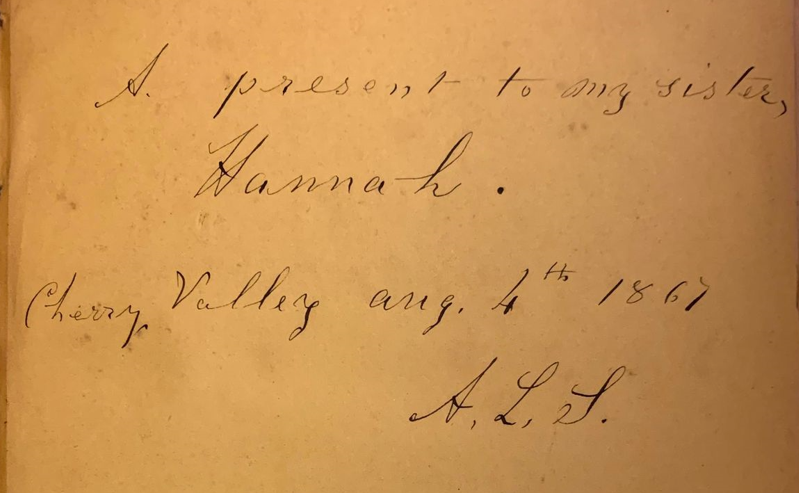 A. present to my sister,
Hannah.
Cherry Valley aug. 4th 1867
A. L. S.